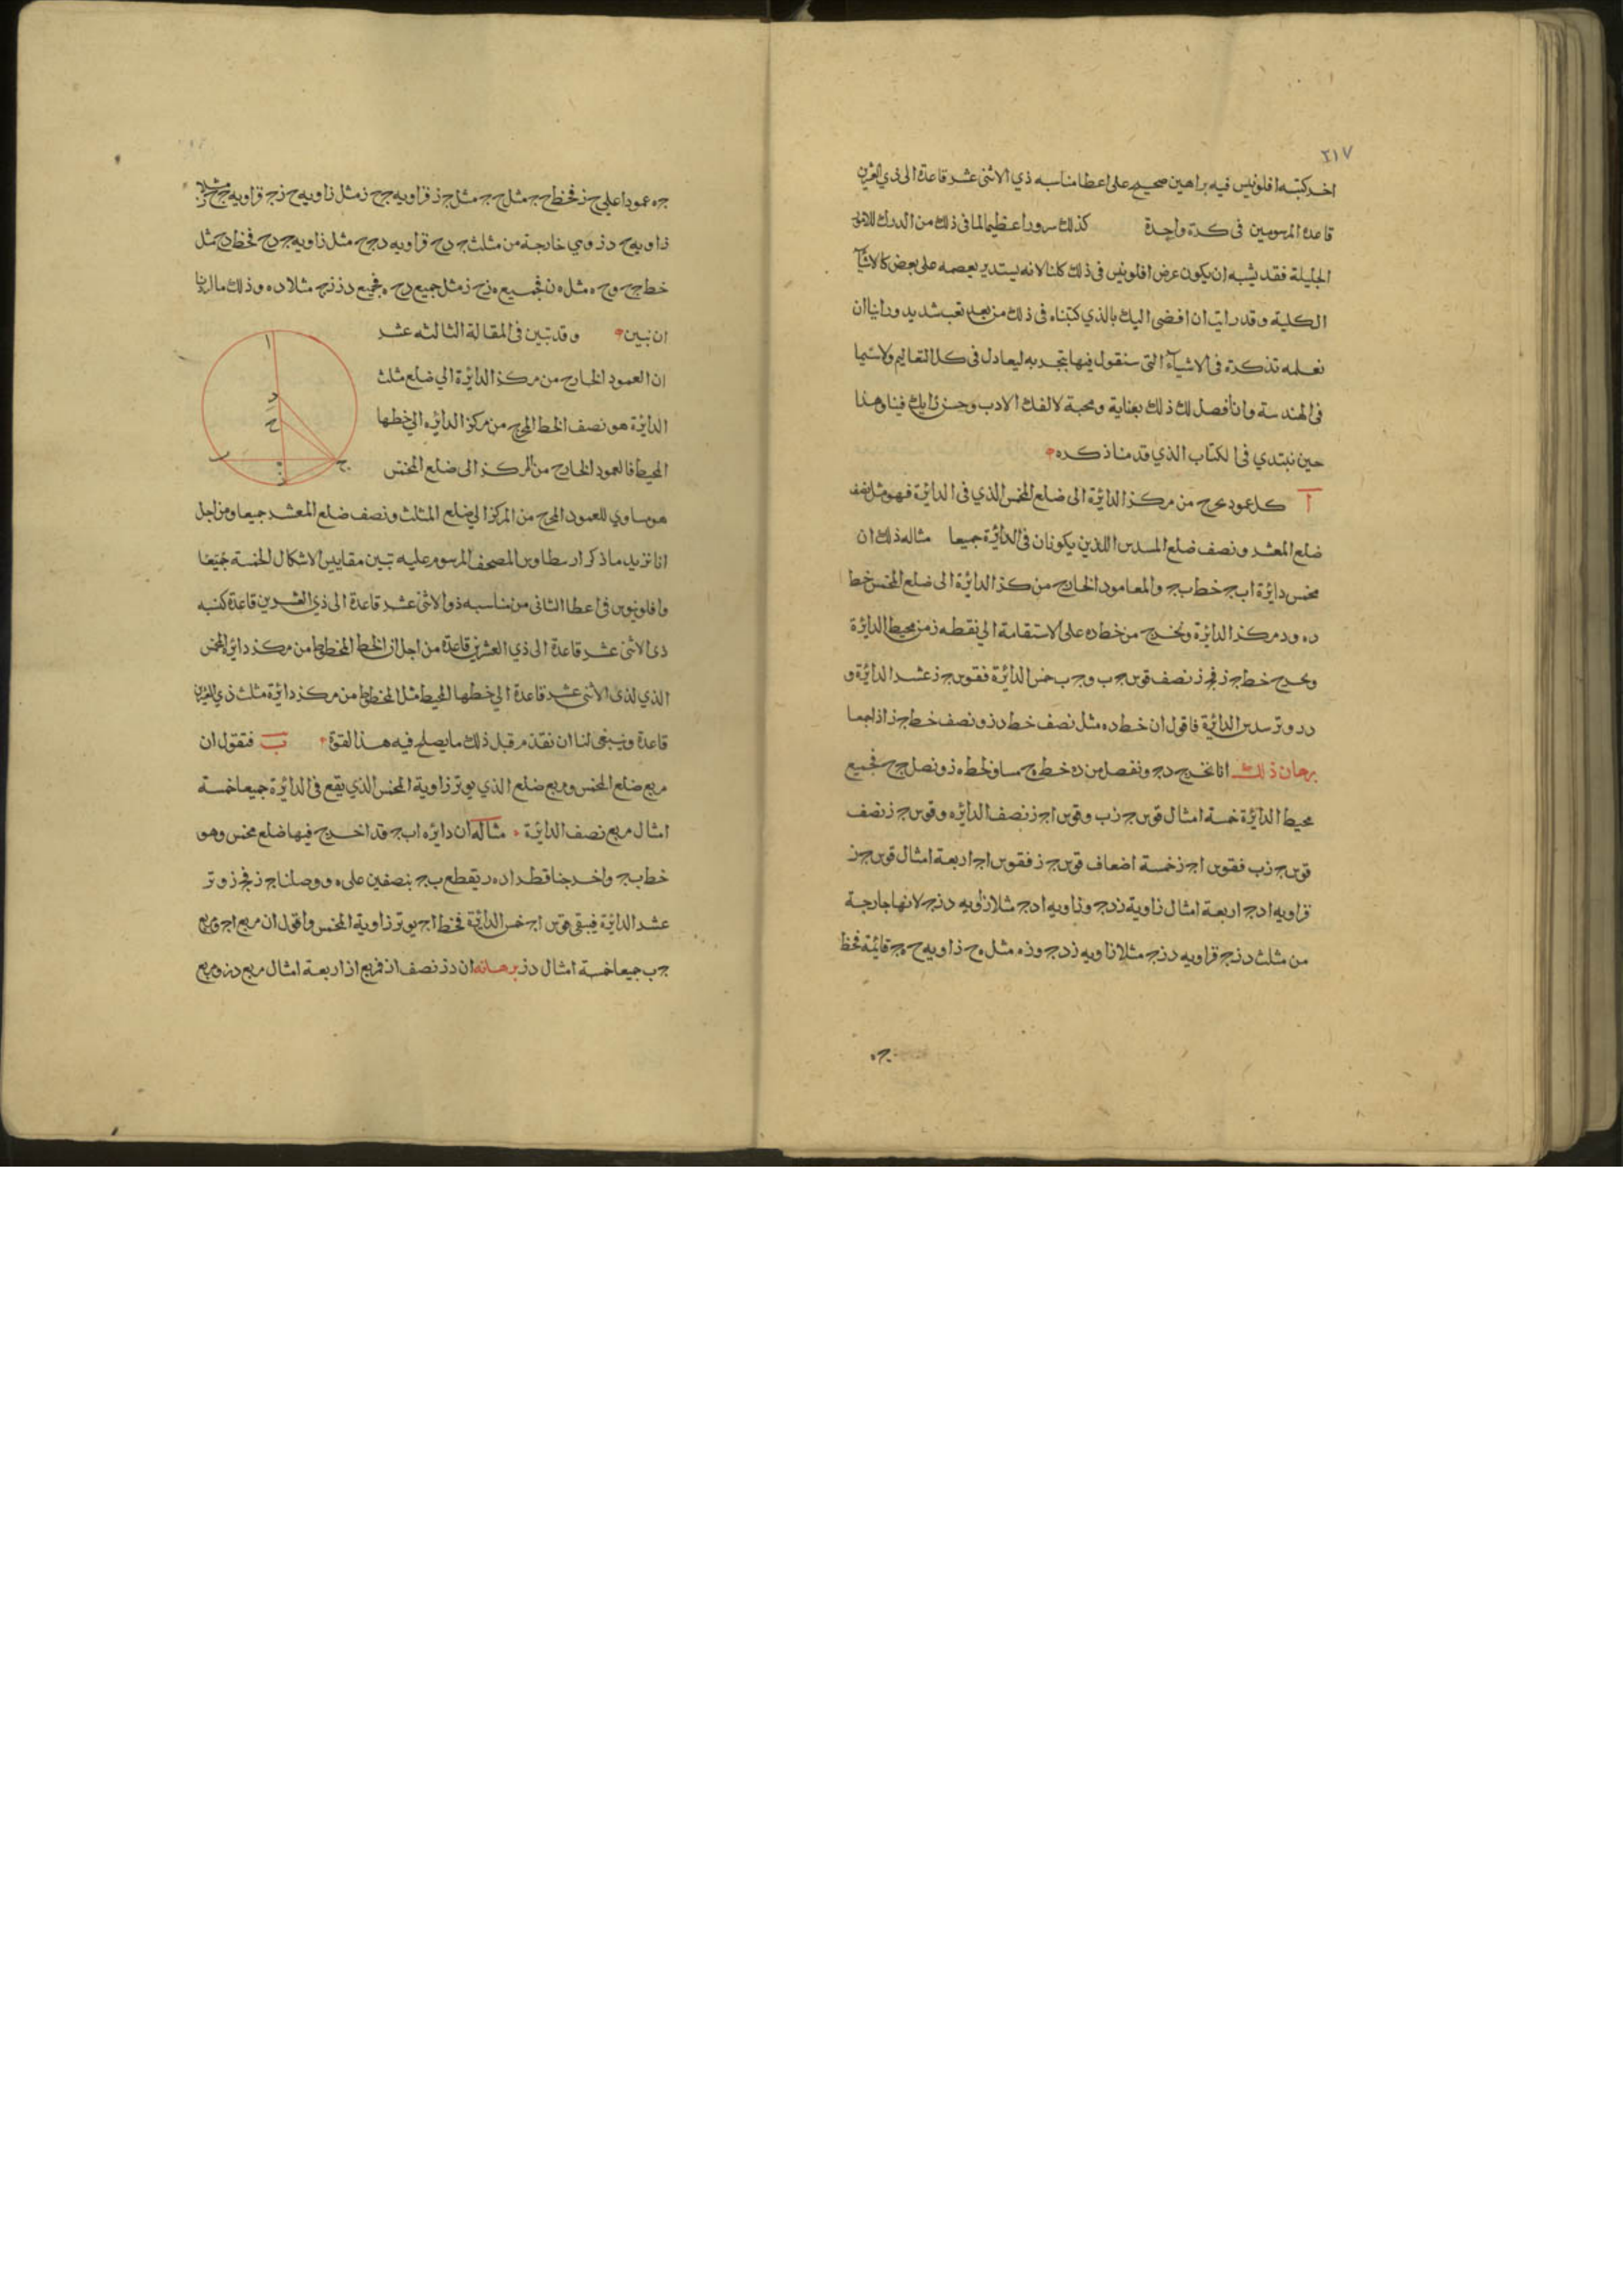 ٢١٧
اخر كتبه افلونيس فيه براهين صحيح على اعطا مناسبه ذي الاثنى عشر قاعدة الى ذي العشرين
قاعدة المرسومين فى كرة واحدة كذلك سرورا عظيما لما فى ذلك من الدرك للامور
الجليلة فقد يشبه ان يكون عرض افلونيس فى ذلك كلنا لانه يستدير بعصمه على بعض كالاشيآ
الكلية وقد رايت ان افضى اليك بالذي كتبناه فى ذلك من بعد تعب شديد ودانيا ان
نعلمه تذكرة فى الاشيآء التى سنقول فيها بتجربه ليعادل فى كل التعاليم ولا سيما
فى الهندسة وانا فصل لك ذلك بعناية ومحبة لالفك الادب وحسن رايك فينا وهذا
حين نبتدي فى الكتاب الذي قدمنا ذكره
آ كل عمود يخرج من مركز الدائرة الى ضلع المخمس الذي فى الدائرة فهو مثل نصف
ضلع المعشر ونصف ضلع المسدس اللذين يكونان فى الدائرة جميعا مثاله ذلك ان
مخمس دايرة ابج خط بج والمعامود الخارج من كز الدايرة الى ضلع المخمس خط
ده ود مركز الدايرة ونخرج من خط ده على الاستقامة الى نقطه ز من محيط الدائرة
ويخرج خط جز فجز نصف قوس جب وجب خمس الدائرة فقوس جز عشر الدائرة و
دد وتر سدس الدايرة فاقول ان خط ده مثل نصف خط دز ونصف خط جز اذا جمعا
برهان ذلك انا نخرج دج ونفصل من ده خط هح مساو لخط هز ونصل جح فجميع
محيط الدائرة خمسة امثال قوس جزب وقوس اجز نصف الدائره وقوس جز نصف
قوس جزب فقوس اجز خمسة اضعاف قوس جز فقوس اج اربعة امثال قوس جز
فزاويه ادج اربعة امثال زاوية زدج وزاويه ادج مثلا زاويه دزج لانها خارجة
من مثلث دزج فزاويه دزج مثلا زاويه زدج وزه مثل هح وزاويه حهج قائمة فخط
جه
جه عمودا على حز فخط حج مثل جز فزاويه جحز مثل زاويه حزج فزاويه جحز مثلا
زاويه حدج وهي خارجة من مثلث جدح فزاويه دجح مثل زاويه جدح فخط دح مثل
خط جح وحه مثل هز فجميع هزجز مثل جميع دح ه فجميع دز زج مثلا ده وذلك ما اردنا
ان نبين وقد تبين فى المقالة الثالثه عشر
ان العمود الخارج من مركز الدائرة الى ضلع مثلث
الدائرة هو نصف الخط المخرج من مركز الدائره الى خطها
المحيط فالعمود الخارج من المركز الى ضلع المخمس
هو مساوي للعمود المخرج من المركز الى ضلع المثلث ونصف ضلع المعشر جميعا ومن اجل
انا نريد ما ذكر ارسطاوس المصحف المرسوم عليه تبين مقاييس الاشكال الخمسة جميعا
وافلونيوس فى اعطا الثانى من مناسبه ذو الاثنى عشر قاعدة الى ذي العشرين قاعدة كنسبه
ذى الاثنى عشر قاعدة الى ذي العشرين قاعدة من اجل ان الخط المخطوط من مركز دائرة المخمس
الذي لذى الاثنى عشر قاعدة الى خطها المحيط مثل المخطوط من مركز دايرة مثلث ذي العشرين
قاعدة وينبغى لنا ان نقدم قبل ذلك ما يصلح فيه هذا القوة ب فنقول ان
مربع ضلع المخمس ومربع ضلع الذي يوتر زاوية المخمس الذي يقع فى الدائرة جميعا خمسة
امثال مربع نصف الدائرة مثاله ان دائره ابج قد اخرج فيها ضلع مخمس وهو
خط بج واخرجنا قطر اده ز يقطع بج بنصفين على ه ووصلنا جز فجز وتر
عشر الدائرة فيبقى قوس اج خمس الدائرة فخط اج يوتر زاوية المخمس واقول ان مربع اج ومربع
جب جميعا خمسة امثال دز برهانه ان دز نصف از فمربع از اربعة امثال مربع دز ومربع
ا
د
ح
ب
ه
ج
ز